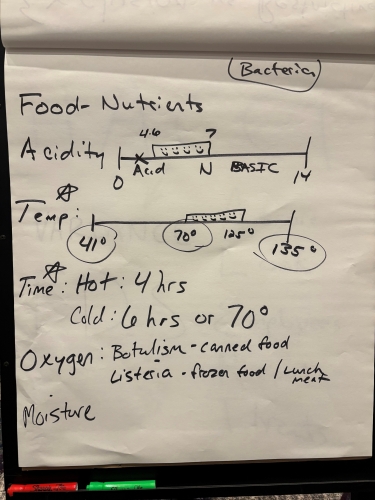 Bacteria
Food-Nutrients
4.6 7
Acidity
0 Acid N BASIC 14
Temp:
41° 70° 125° 135°
Time: Hot: 4 hrs
Cold: 6 hrs or 70°
Oxygen: Botulism - canned food
Listeria - frozen food / Lunch
meat
Moisture